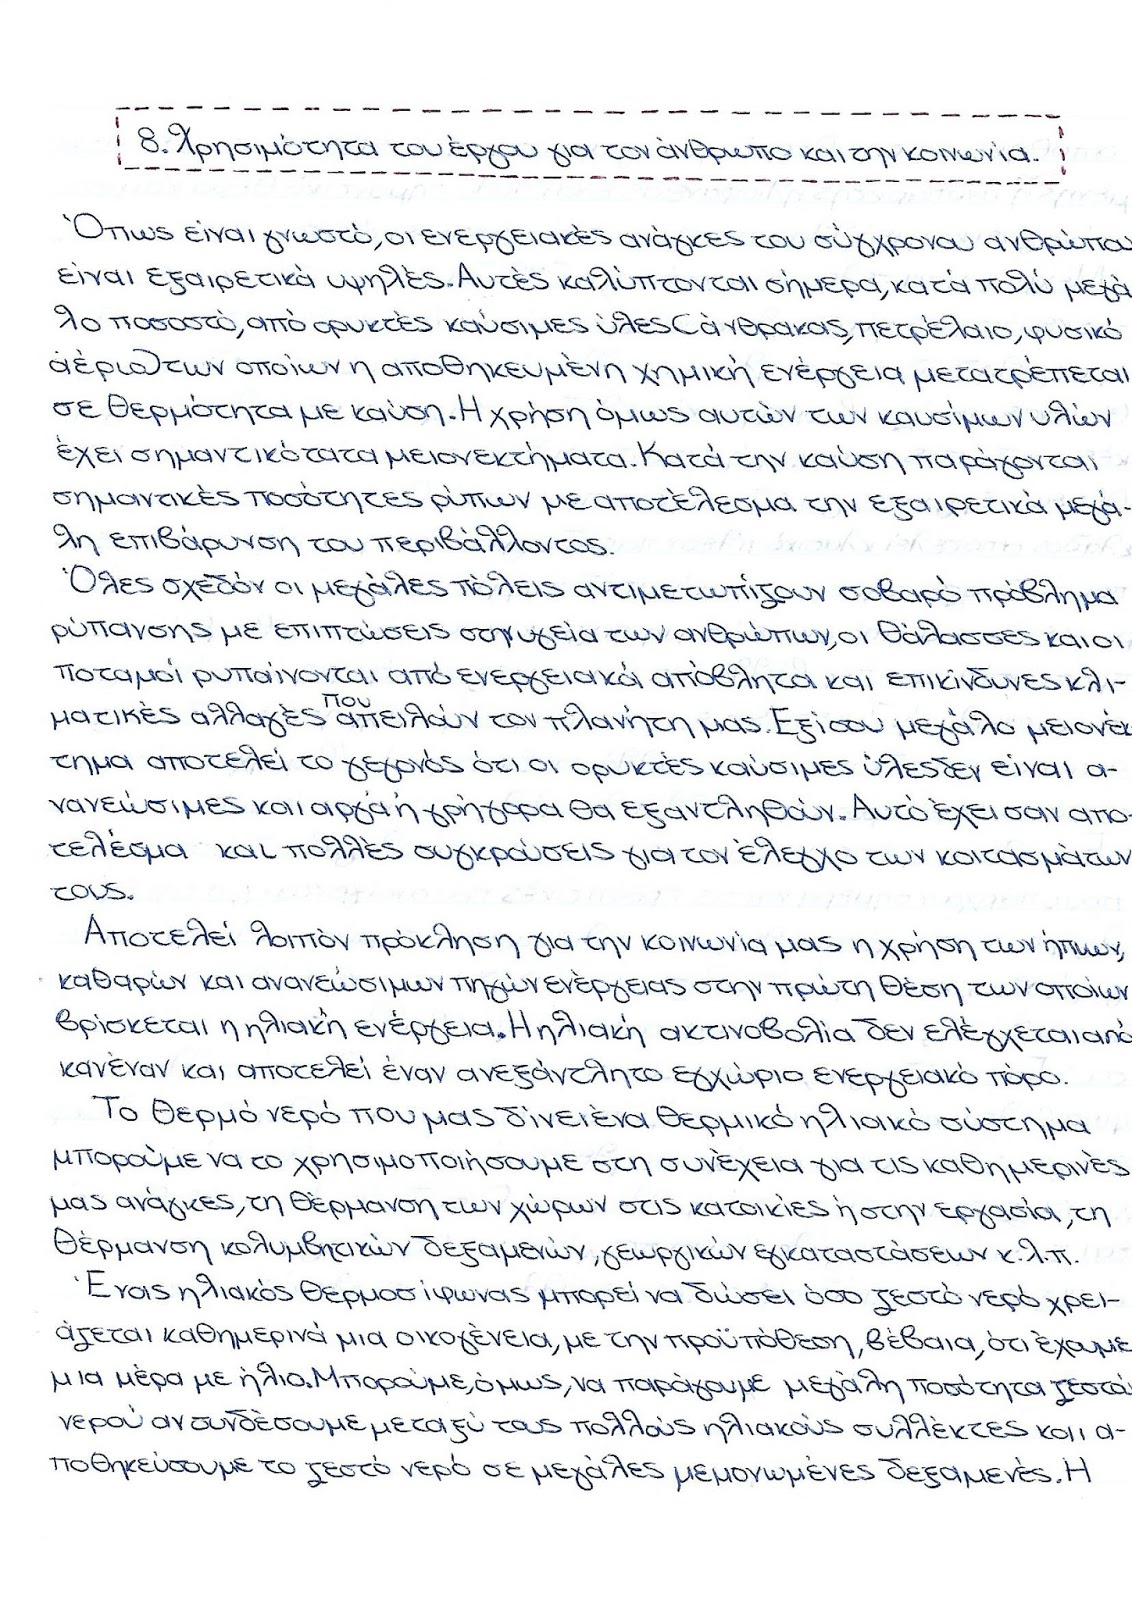 8. Χρησιμότητα του έργου για τον άνθρωπο και την κοινωνία.
Όπως είναι γνωστό, οι ενεργειακές ανάγκες του σύγχρονου ανθρώπου
είναι εξαιρετικά υψηλές. Αυτές καλύπτονται σήμερα, κατά πολύ μεγά
λο ποσοστό, από ορυκτές καύσιμες ύλες (άνθρακας, πετρέλαιο, φυσικό
αέριο) των οποίων η αποθηκευμένη χημική ενέργεια μετατρέπεται
σε θερμότητα με καύση. Η χρήση όμως αυτών των καυσίμων υλών
έχει σημαντικότατα μειονεκτήματα. Κατά την καύση παράγονται
σημαντικές ποσότητες ρύπων με αποτέλεσμα την εξαιρετικά μεγά-
λη επιβάρυνση του περιβάλλοντος.
Όλες σχεδόν οι μεγάλες πόλεις αντιμετωπίζουν σοβαρό πρόβλημα
ρύπανσης με επιπτώσεις στην υγεία των ανθρώπων, οι θάλασσες και οι
ποταμοί ρυπαίνονται από ενεργειακά απόβλητα και επικίνδυνες κλι-
ματικές αλλαγές που απειλούν τον πλανήτη μας. Εξίσου μεγάλο μειονέκ
τημα αποτελεί το γεγονός ότι οι ορυκτές καύσιμες ύλες δεν είναι α-
νανεώσιμες και αργά ή γρήγορα θα εξαντληθούν. Αυτό έχει σαν απο-
τελέσμα και πολλές συγκρούσεις για τον έλεγχο των κοιτασμάτων
τους.
Αποτελεί λοιπόν πρόκληση για την κοινωνία μας η χρήση των ήπιων,
καθαρών και ανανεώσιμων πηγών ενέργειας στην πρώτη θέση των οποίων
βρίσκεται η ηλιακή ενέργεια. Η ηλιακή ακτινοβολία δεν ελέγχεται από
κανέναν και αποτελεί έναν ανεξάντλητο εγχώριο ενεργειακό πόρο.
Το θερμό νερό που μας δίνει ένα θερμικό ηλιακό σύστημα
μπορούμε να το χρησιμοποιήσουμε στη συνέχεια για τις καθημερινές
μας ανάγκες, τη θέρμανση των χώρων στις κατοικίες ή στην εργασία, τη
θέρμανση κολυμβητικών δεξαμενών, γεωργικών εγκαταστάσεων κ.λ.π.
Ένας ηλιακός θερμοσίφωνας μπορεί να δώσει όσο ζεστό νερό χρει-
άζεται καθημερινά μια οικογένεια, με την προϋπόθεση, βέβαια, ότι έχουμε
μια μέρα με ήλιο. Μπορούμε, όμως, να παράγουμε μεγάλη ποσότητα ζεστού
νερού αν συνδέσουμε μεταξύ τους πολλούς ηλιακούς συλλέκτες και α-
ποθηκεύσουμε το ζεστό νερό σε μεγάλες μεμονωμένες δεξαμενές. Η